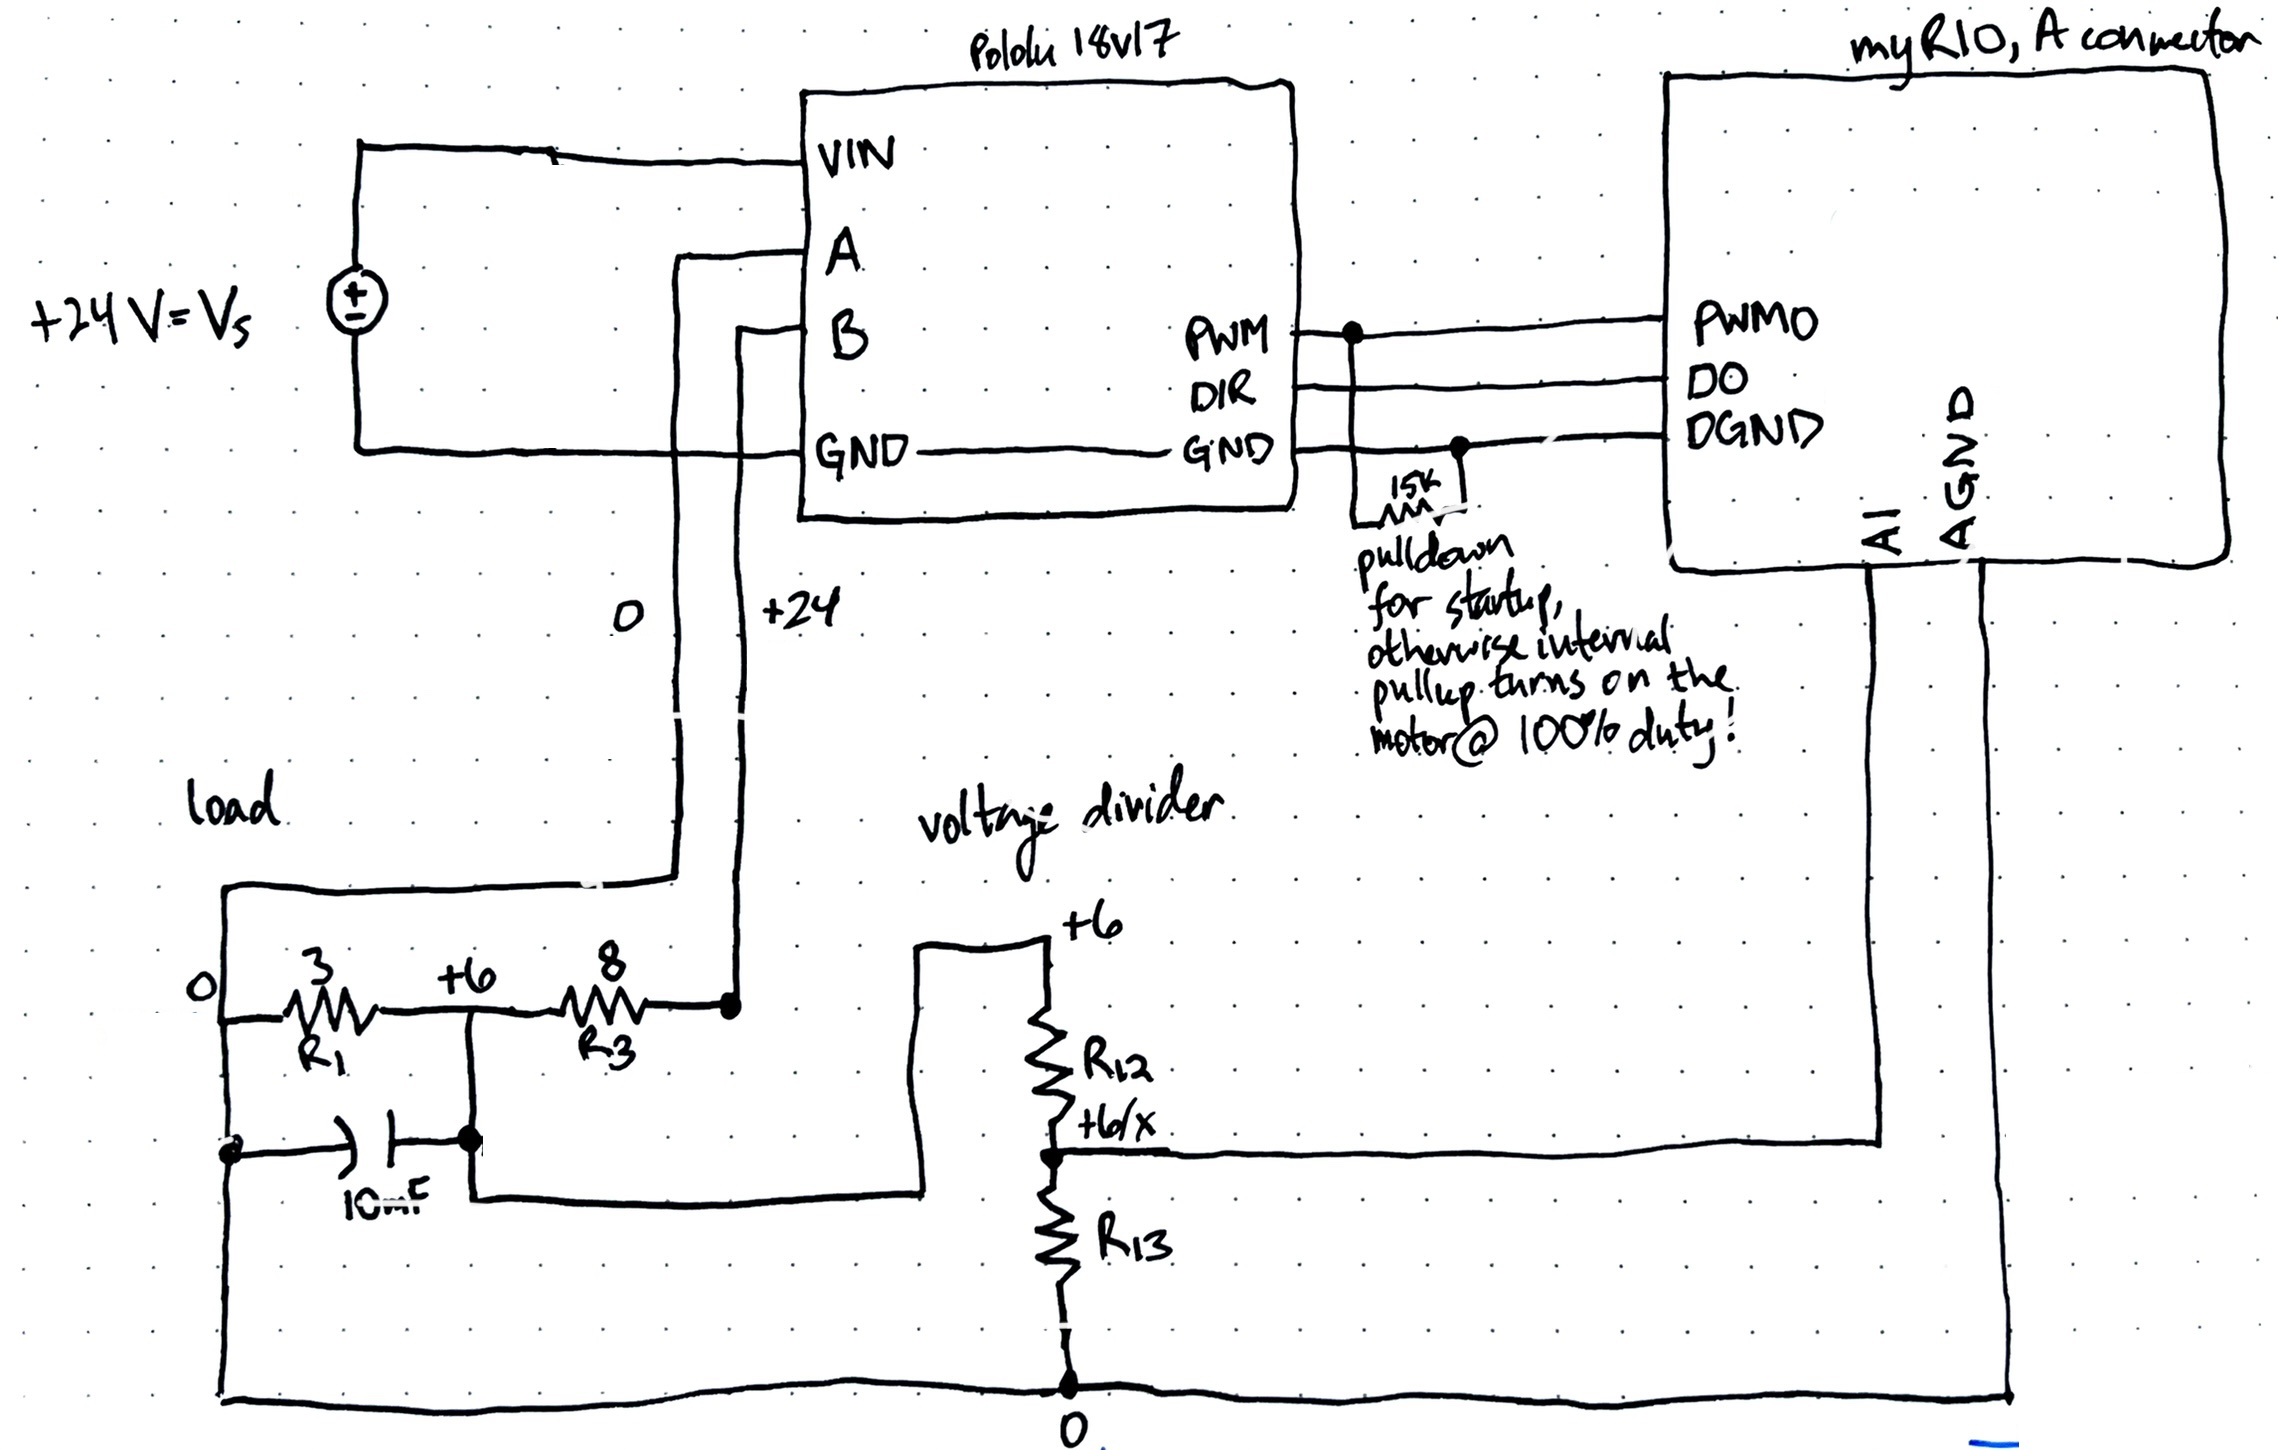 Pololu 18v17
myRIO, A connector
VIN
A
B
GND
PWM
DIR
GND
+24 V = Vs
PWM0
D0
DGND
AI
AGND
15K
pulldown
for startup,
otherwise internal
pullup turns on the
motor @ 100% duty!
0
+24
load
voltage divider
+6
0
3
+6
8
R1
R3
R12
+6/x
10mF
R13
0